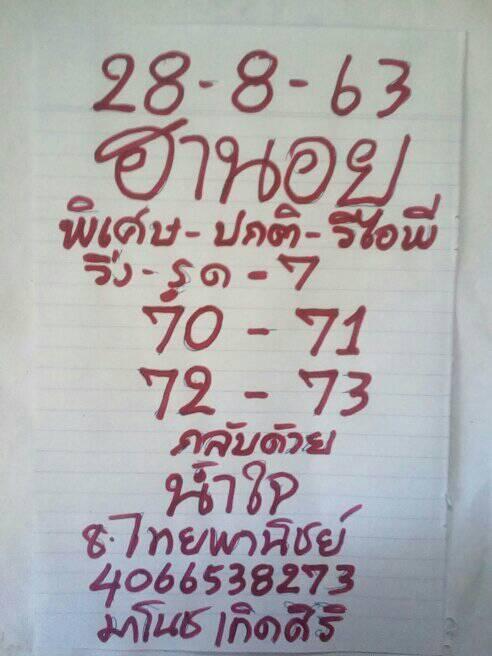 28-8-63
ฮานอย
พิเศษ-ปกติ-วีไอพี
วิ่ง-รูด-7
70-71
72-73
กลับด้วย
น้ำใจ
ธ.ไทยพานิชย์
4066538273
มาโนช เกิดศิริ